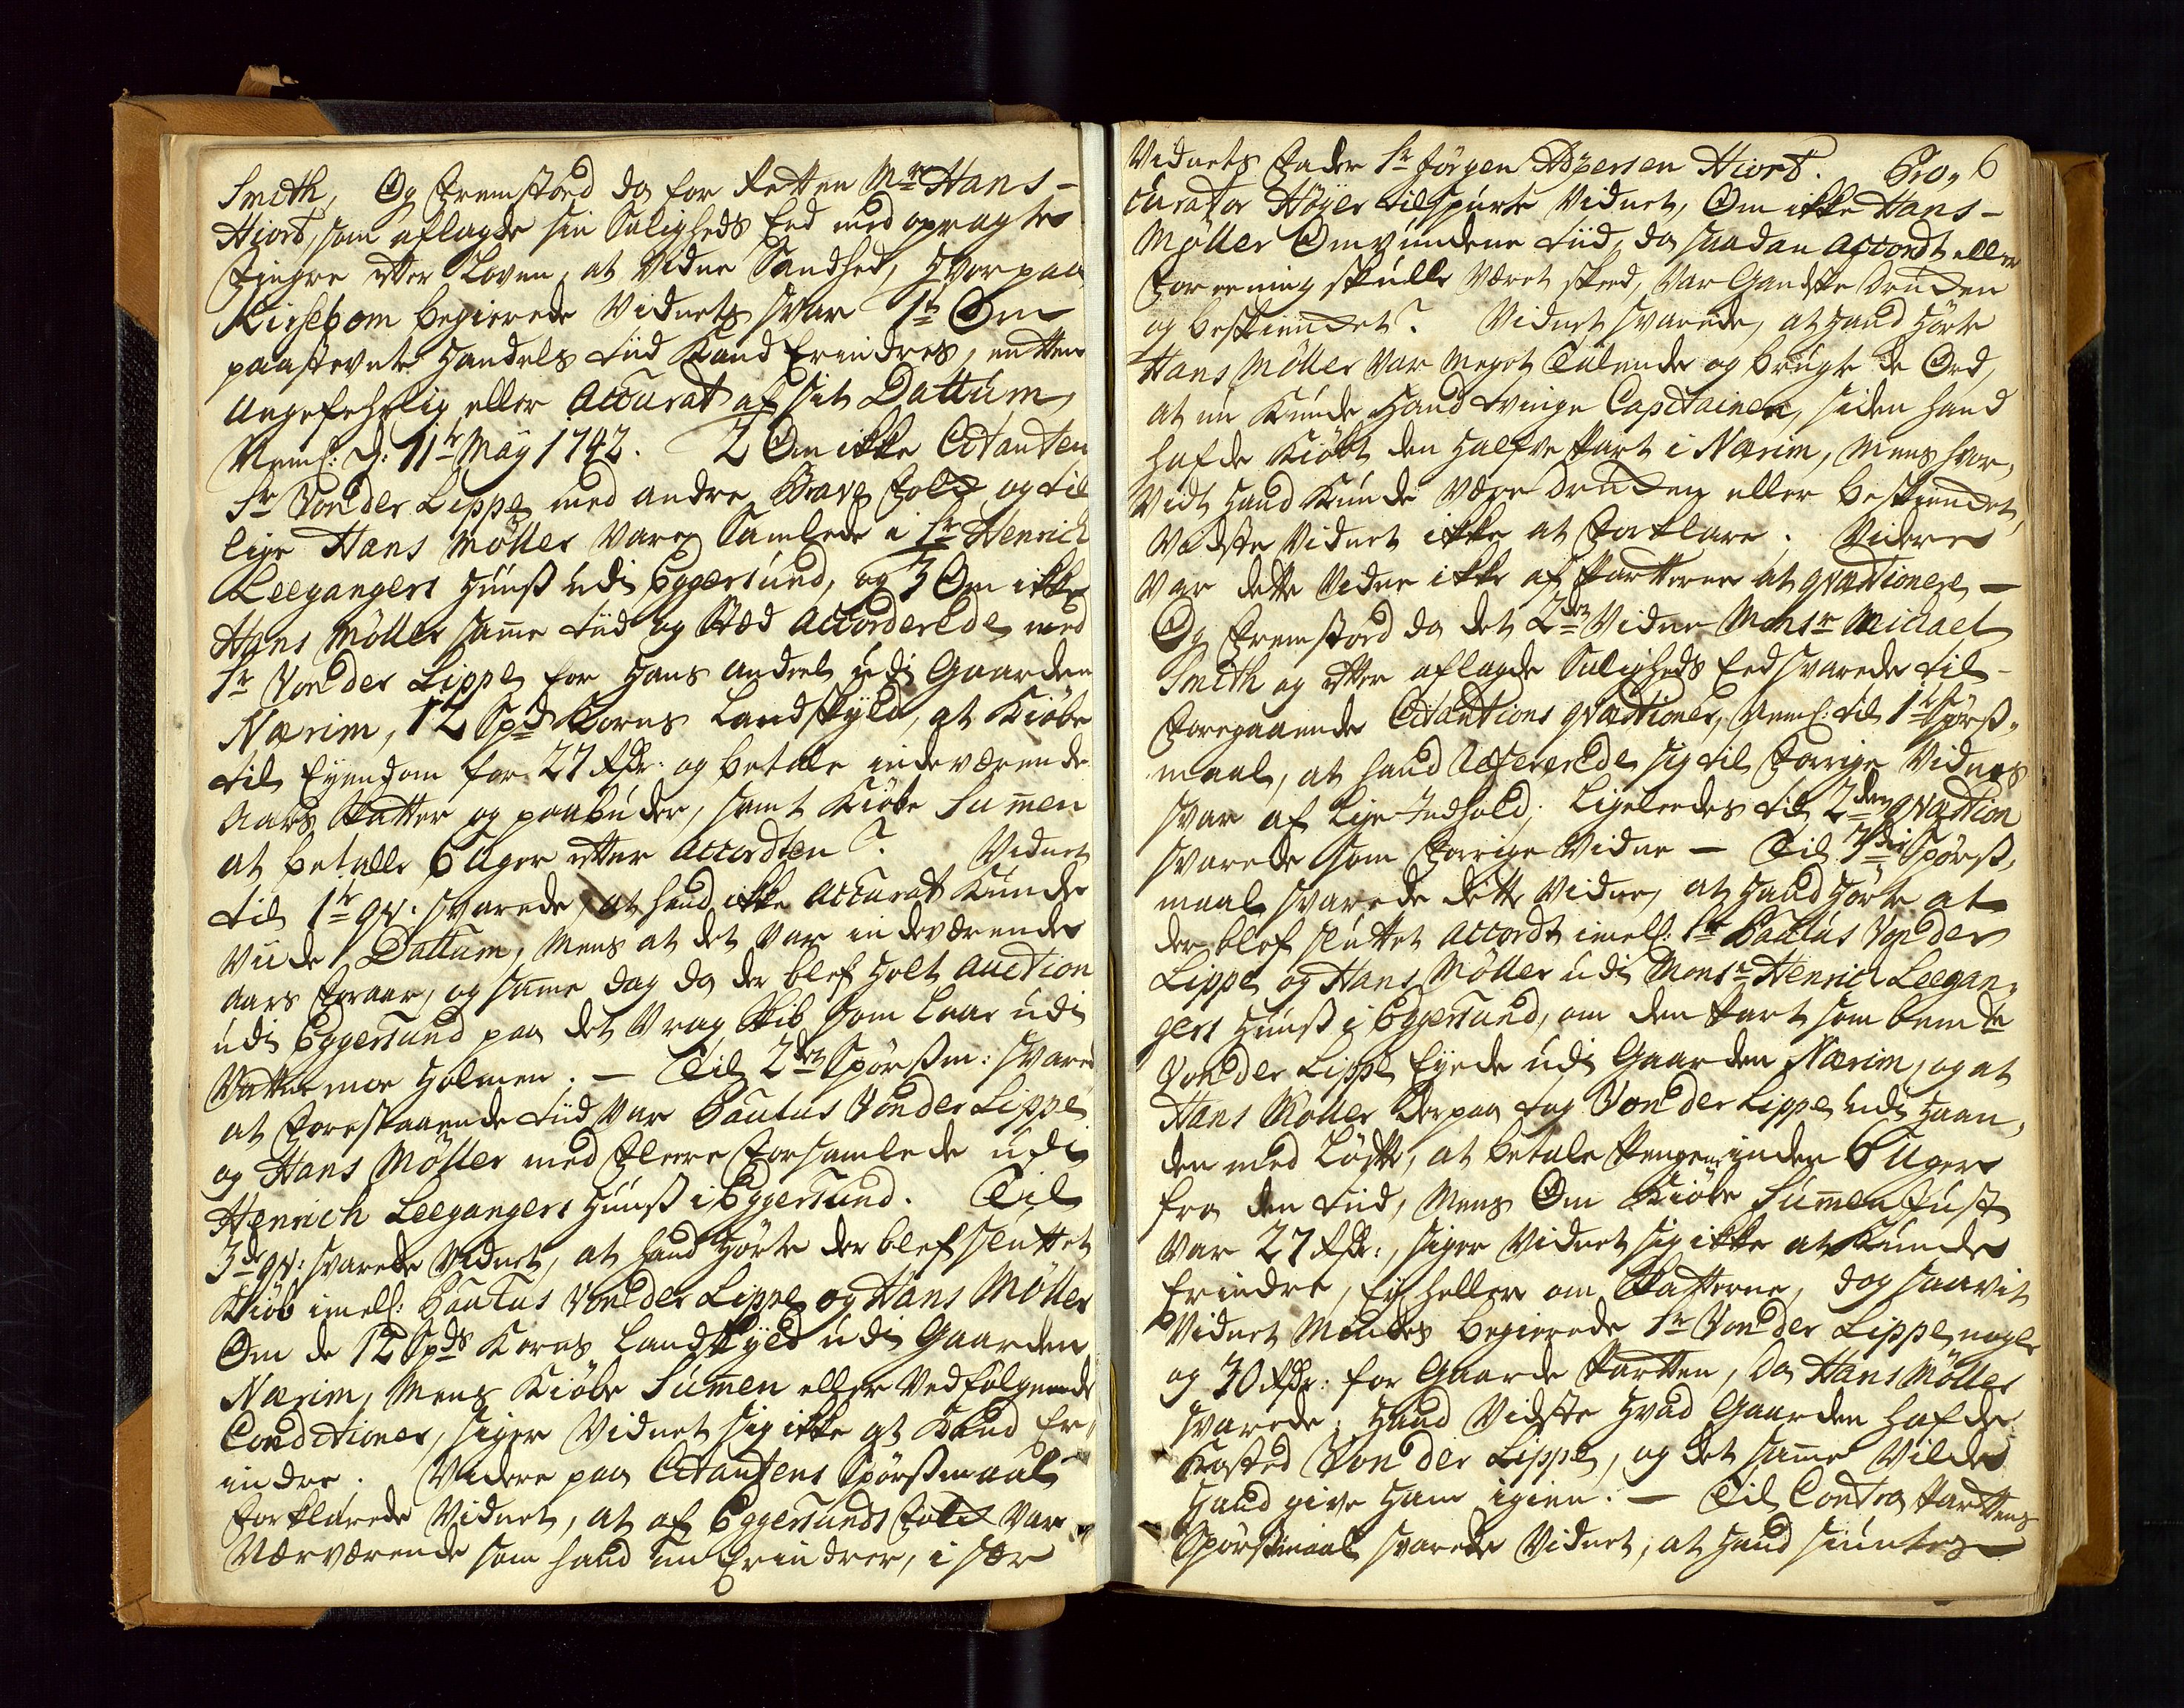 Smith, Og Fremstoed da for Retten Mr Hans-
Hiort, som aflagde sin Saligheds Eed med opragte
Fingre etter Loven, at Vidne Sandhed, hvorpaa
Kirsebom begierede Vidnets svar 1te Om
paastevnte Handels tiid Kand Erindres, entten
Ungefehrlig eller Accurat af sit Dattum,
Neml: d: 11te Maÿ 1742. 2 Om ikke Citanten
Sr Von der Lippe med andre Brave Folck og til
lige Hans Møller Vare Samlede i Sr Henrich
Leegangers Huuss udi Eggersund, og 3 Om ikke
Hans Møller samme tiid og Sted Accorderede med
Sr Von der Lippe for Hans andeel udi Gaarden
Nærim, 12 Spd Korns Landskyld, at Kiøbe
til Eyendom for 27 Rdr: og betale indeværende
Aars Skatter og paabuder, samt Kiøbe Summen
at betalle 6 Uger etter Accordten? Vidnet
til 1te qv: svarede, at hand ikke Accurat Kunde
Viide Dattum, Mens at det Var indeværende
Aars Foraar, og samme dag da der blef Holt Auction
udi Eggersund paa det Vrag Skib som Laae udi
Holmen. - Til 2den Spørssm: svared
at Forestaaende tiid Var Paulus Von der Lippe
og Hans Møller med Fleere Forsamlede udi
Henrich Leegangers Huuss i Eggersund. Til
3de qv: svarede Vidnet, at hand Hørte der blef sluttet
Kiøb imell: Paulus Von der Lippe og Hans Møller
Om de 12 Spds Korns Landskyld udi Gaarden
Nærim, Mens Kiøbe Summen eller Vedfølgende
Conditioner, siger Vidnet sig ikke at Kand Er-
indre. Videre paa Citantens Spørssmaal
Forklarede Vidnet, at af Eggersunds Folck Var
Nærværende som hand nu Erindrer, i sær
Vidnets Fader Sr Jørgen Hiort. Pro, 6
curator Høyer tilspurte Vidnet, Om ikke Hans-
Møller Omvundene tiid, da saadan Accordt eller
Foreening skulle Været skeed, Var Gandske drucken
og beskiencket? Vidnet svarede, at Hand Hørte
Hans Møller Var meget Talende og brugte de Ord,
at nu Kunde Hand tvinge Capitainen, siden Hand
Hafde Kiøbt den Halfve Part i Nærim, Mens hvor,
Vidt Hand Kunde Være drucken eller beskiencket,
Vidste Vidnet ikke at Forklare. Videre
Var dette Vidne ikke af Parterne at qvæstionere -
Og Fremstoed da det 2det Vidne Monsr Michael
Smith og etter aflagde Saligheds Eed svarede til-
Foregaaende Citantions qvæstioner, Neml: til 1te Spørss,
maal, at hand Refererede sig til Forrige Vidnes
svar af Lige Indhold. Ligeleedes til 2den qvæstion
svarede som Forrige Vidne - Til 3die Spørss,
maal svarede dette Vidne, at Hand Hørte at
der blef sluttet Accordt imell: Sr Paulus Von der
Lippe og Hans Møller udi Monsr Henrich Leegan,
gers Huuss i Eggersund, om den Part som bemte
Von der Lippe Eyede udi Gaarden Nærim, og at
Hans Møller derpaa tog Von der Lippe udi Haan,
den med Løfte, at betale Pengene inden 6 Uger
fra den tiid, Mens Om Kiøbe Summen Just
Var 27 Rdr:, siger Vidnet sig ikke at Kunde
Erindre, Ey heller om Skatterne, dog saavit
Vidnet Mindes begierede Sr Von der Lippe nogle
og 30 Rdr: for Gaarde Parten, da Hans Møller
svarede; Hand Vidste Hvad Gaarden Hafde
Kosted Von der Lippe, og det samme Vilde
Hand give Ham igien. - Til Contra Partens
Spørssmaal svarede Vidnet, at Hand siuntes